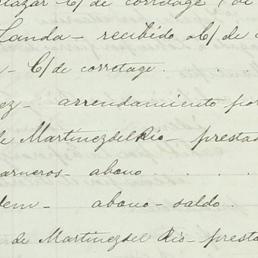 alazar C/ de corretage (de
Landa - recibido a C/ de
n - C/ de corretage.
ez - arrendamiento por
de Martinez del Rio - prestad
arneros - abono
dem - abono - saldo.
de Martinez del Rio - presta